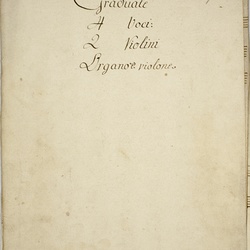 Graduale
4 Voci:
2 Violini
Organo e violone.